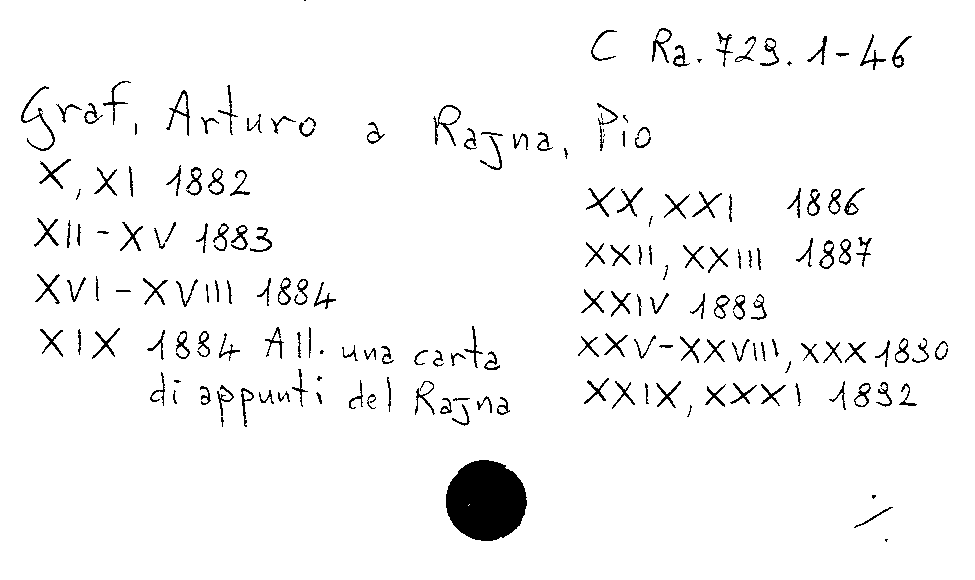 C Ra. 729. 1-46
Graf, Arturo a Rajna, Pio
X, XI 1882
XII - XV 1883
XVI - XVIII 1884
XIX 1884 All. una carta
di appunti del Rajna
XX, XXI 1886
XXII, XXIII 1887
XXIV 1889
XXV-XXVIII, XXX 1890
XXIX, XXXI 1892
./.